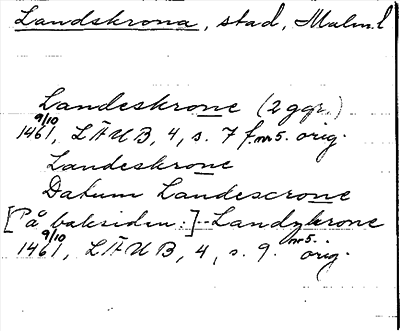 Landskrona, stad, Malm.l
Landeskrone (2 ggr.)
1461 9/10, LÄUB, 4, s. 7 f. nr 5. orig.
Landeskrone
Datum Landescrone
[På baksidan:] -- Landzkrone
1461 9/10, LÄUB, 4, s. 9. nr 5. orig.